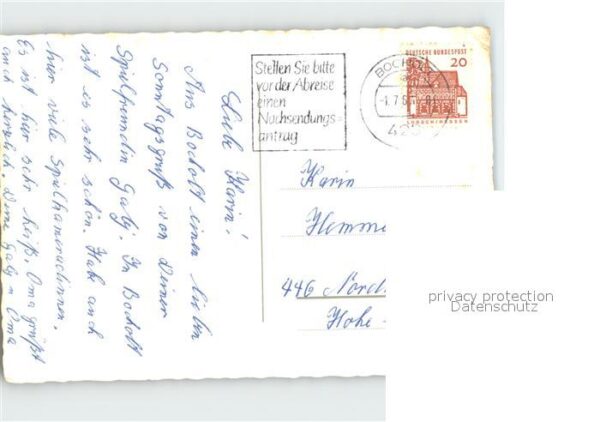 Liebe Karin!
Aus Bocholt einen lieben
Sonntagsgruß von Deiner
Spielfreundin Gaby. In Bocholt
ist es sehr schön. Habe auch
hier viele Spielkameradinnen.
Es ist hier sehr heiß. Oma grüßt
auch herzlich. Deine Gaby u Oma
Stellen Sie bitte
vor der Abreise
einen
Nachsendungs=
antrag
DEUTSCHE BUNDESPOST
20
LORSCH/HESSEN
BOCHOLT
Karin
Hemme
446 Nord
Hohe-
privacy protection
Datenschutz